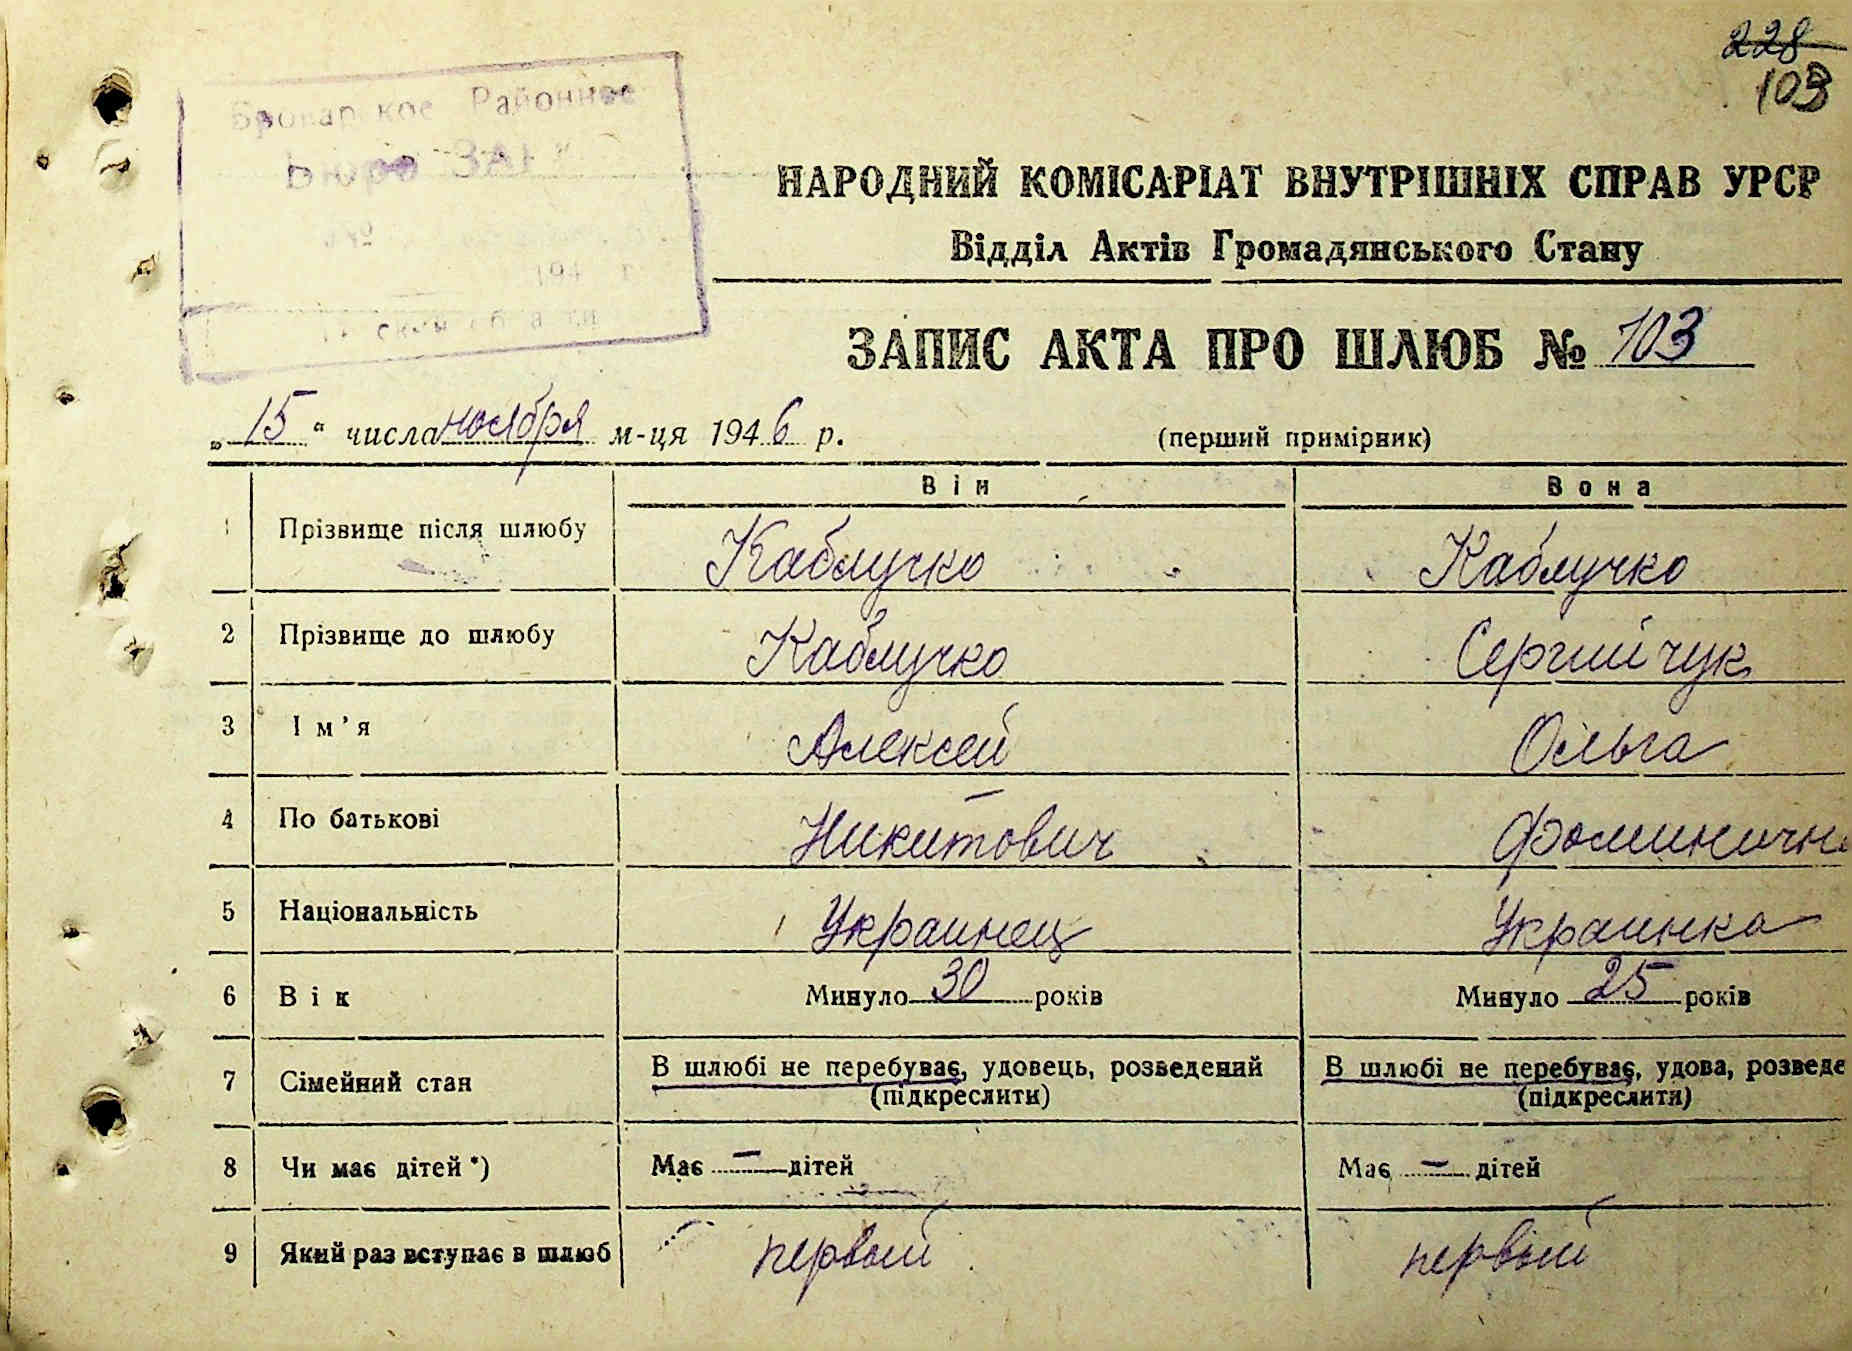 228
103
Броварское Районное
Бюро ЗАГС
№
194 г
НАРОДНИЙ КОМІСАРІАТ ВНУТРІШНІХ СПРАВ УРСР
Відділ Актів Громадянського Стану
ЗАПИС АКТА ПРО ШЛЮБ № 103
„15“ числа ноября м-ця 1946 р. (перший примірник)
Він Вона
1 Прізвище після шлюбу Каблучко Каблучко
2 Прізвище до шлюбу Каблучко Сергийчук
3 Ім’я Алексей Ольга
4 По батькові Никитович Фоминичн
5 Національність Украинец Украинка
6 Вік Минуло 30 років Минуло 25 років
7 Сімейний стан В шлюбі не перебуває, удовець, розведений В шлюбі не перебуває, удова, розведе
(підкреслити) (підкреслити)
8 Чи має дітей*) Має — дітей Має — дітей
9 Який раз вступає в шлюб первый первый